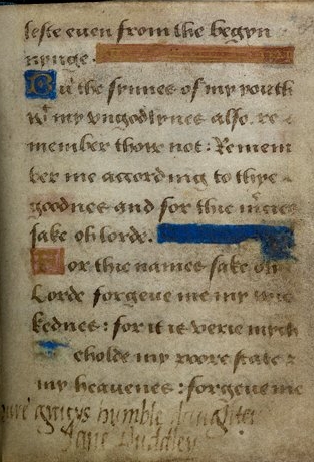 leste even from the begyn
nynge.
Bu the synnes of my youth
wt my vngodlynes also. re-
member thow not: Remem
ber me according to thye
goodnes and for thie mcies
sake oh lorde.
For thie names sake oh
Lorde forgeue me my wic
kednes: for it is verie mych
eholde my poore state &
my heauenes: forgeue me
youre gracys humble daughter
Jane Duddley